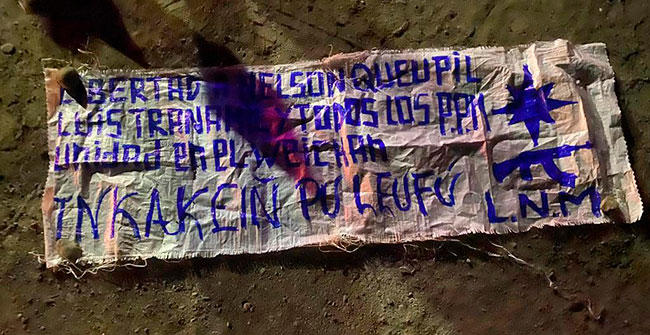 LIBERTAD NELSON QUEUPIL
LUIS TRANAMIL Y TODOS LOS P.P.M
Unidad en EL WEICHAN
INKAKEIÑ PU LEUFÚ
L.N.M